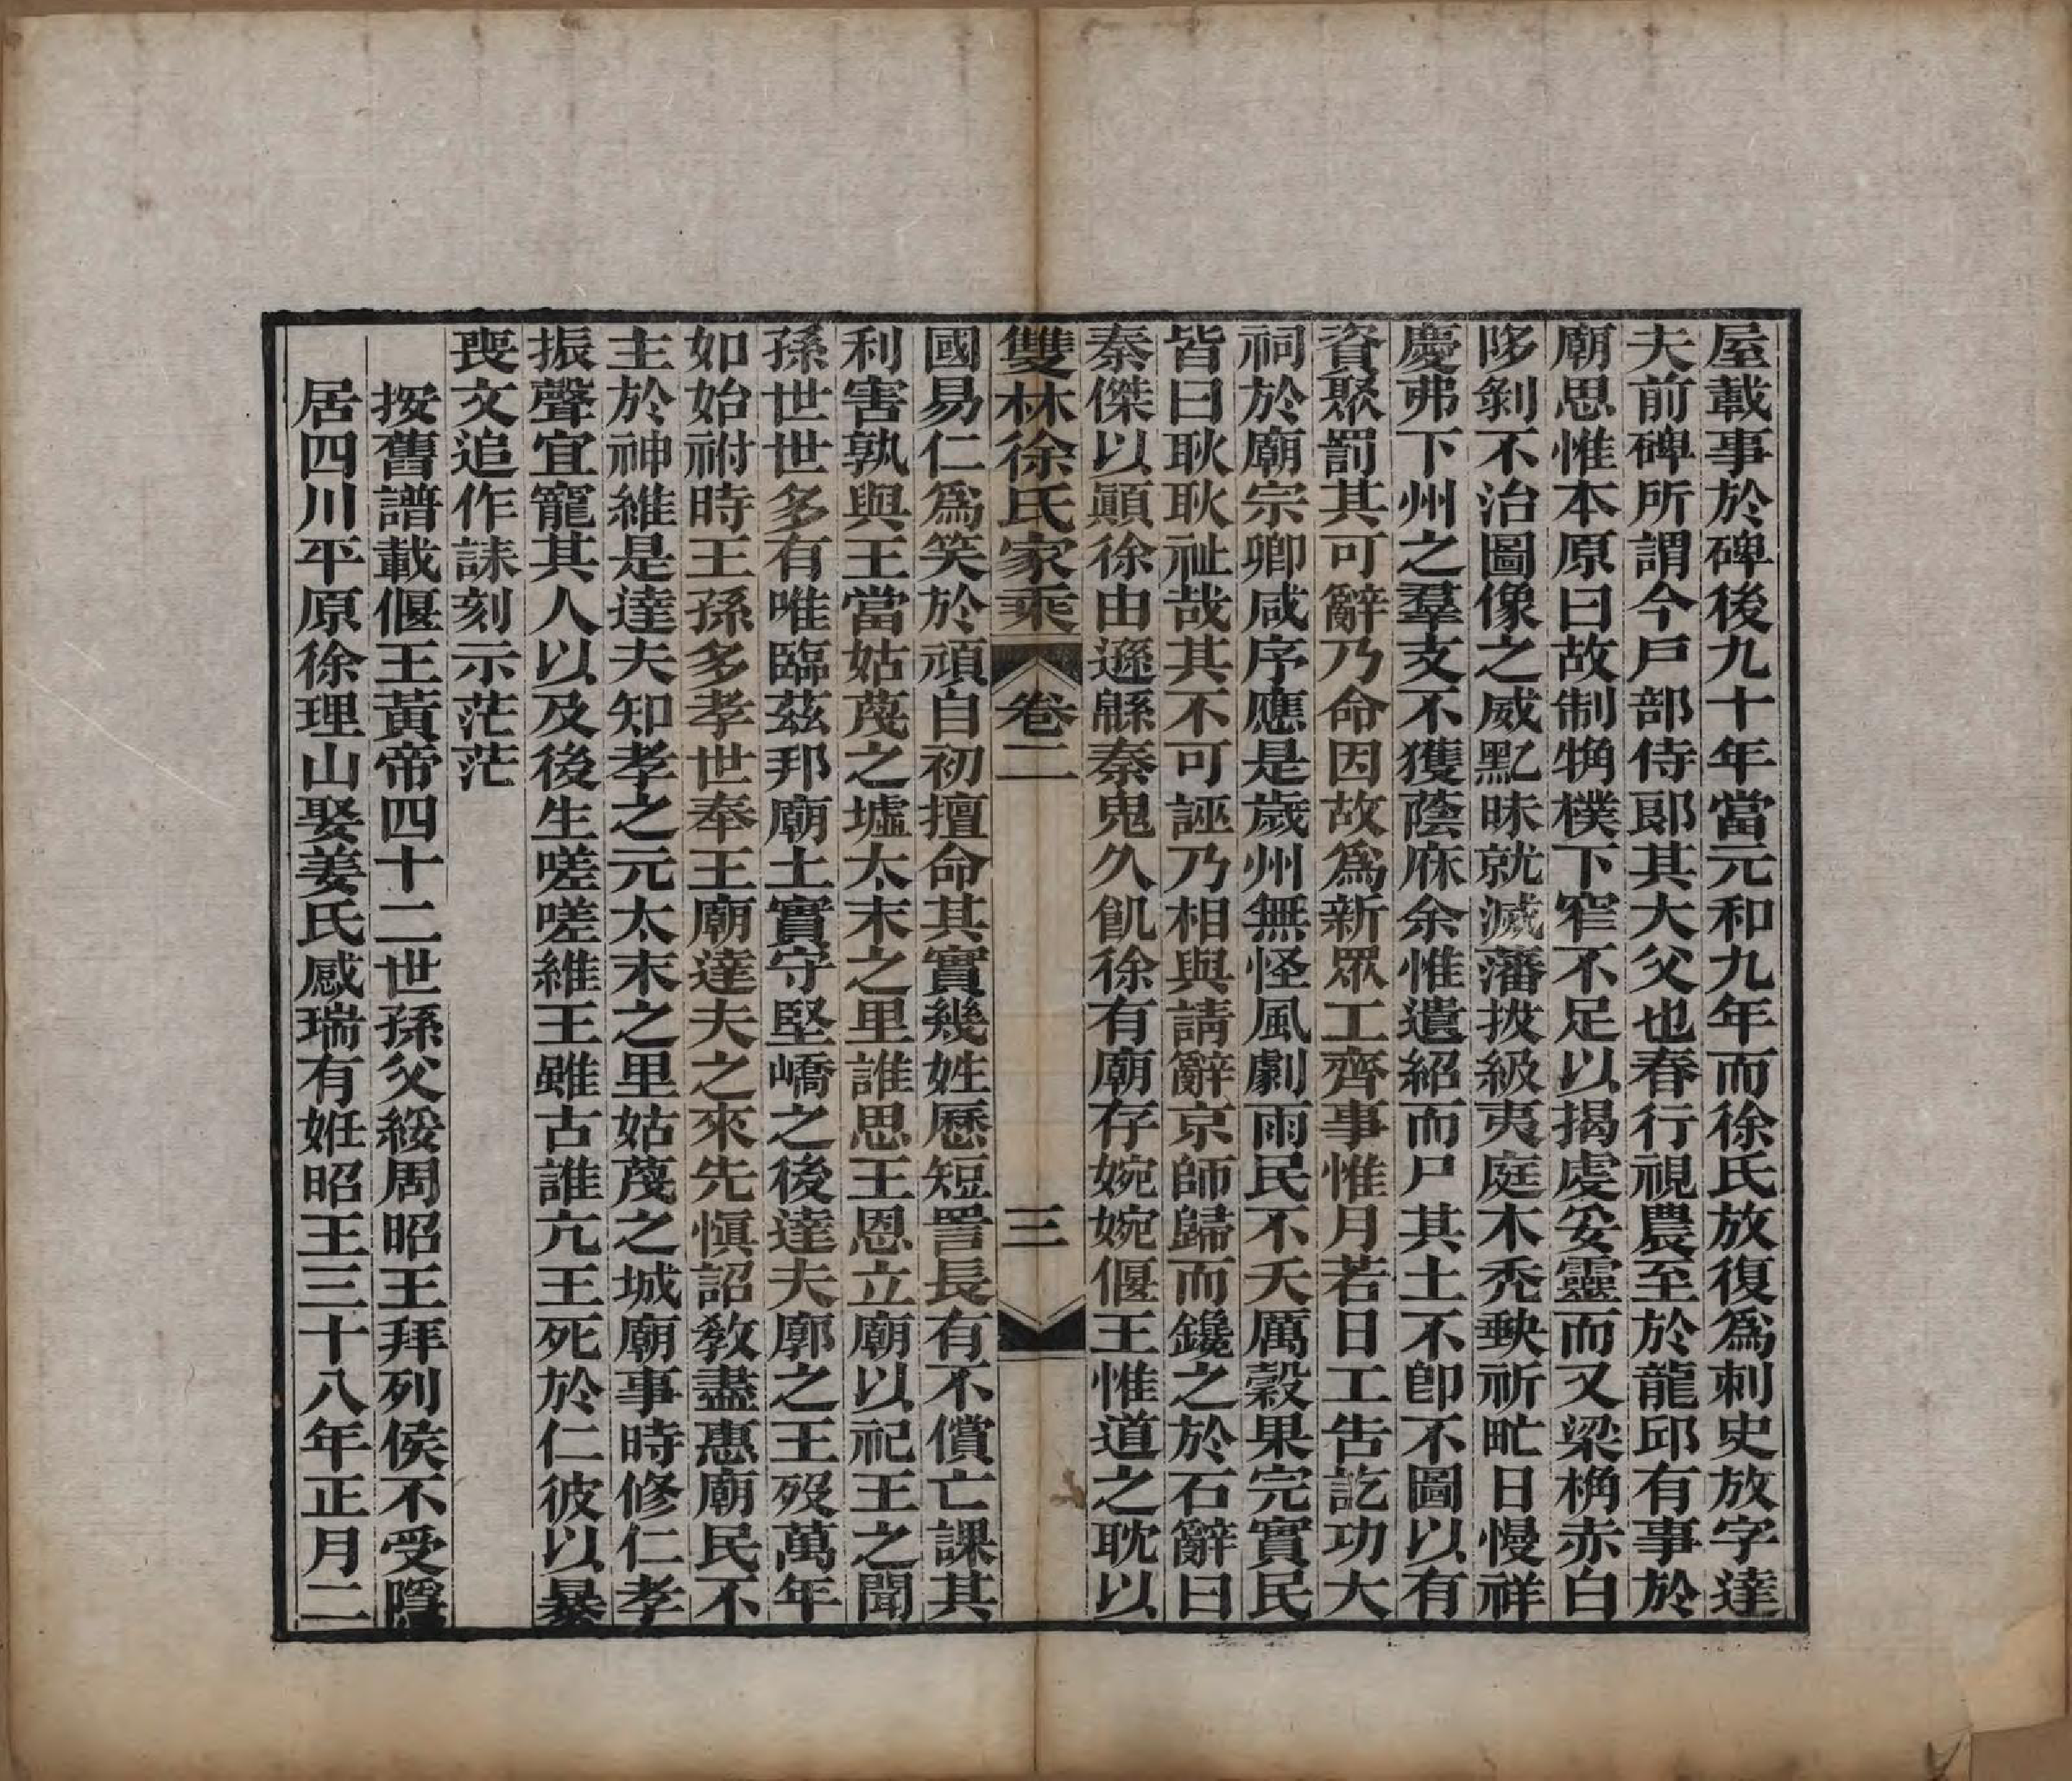 屋載事於碑後九十年當元和九年而徐氏放復爲刺史放字達
夫前碑所謂今戸部侍郎其大父也春行視農至於龍邱有事於
廟思惟本原曰故制觕樸下窄不足以揭虔妥靈而又梁桷赤白
陊剝不治圖像之威黓昧就滅藩拔級夷庭木秃缺祈甿日慢祥
慶弗下州之羣支不獲蔭庥余惟遺紹而尸其土不卽不圖以有
資聚罰其可辭乃命因故爲新眾工齊事惟月若日工告訖功大
祠於廟宗卿咸序應是歲州無怪風劇雨民不夭厲穀果完實民
皆曰耿耿祉哉其不可誣乃相與請辭京師歸而鑱之於石辭曰
秦傑以顚徐由遜緜秦鬼久飢徐有廟存婉婉偃王惟道之耽以
雙林徐氏家乘 卷二 三
國易仁爲笑於頑自初擅命其實幾姓歷短詈長有不償亡課其
利害孰與王當姑蔑之墟太末之里誰思王恩立廟以祀王之聞
孫世世多有唯臨茲邦廟土實守堅嶠之後達夫廓之王歿萬年
如始祔時王孫多孝世奉王廟達夫之來先愼詔教盡惠廟民不
主於神維是達夫知孝之元太末之里姑蔑之城廟事時修仁孝
振聲宜寵其人以及後生嗟嗟維王雖古誰亢王死於仁彼以暴
喪文追作誄刻示茫茫
按舊譜載偃王黃帝四十二世孫父綏周昭王拜列侯不受隱
居四川平原徐理山娶姜氏感瑞有妊昭王三十八年正月二